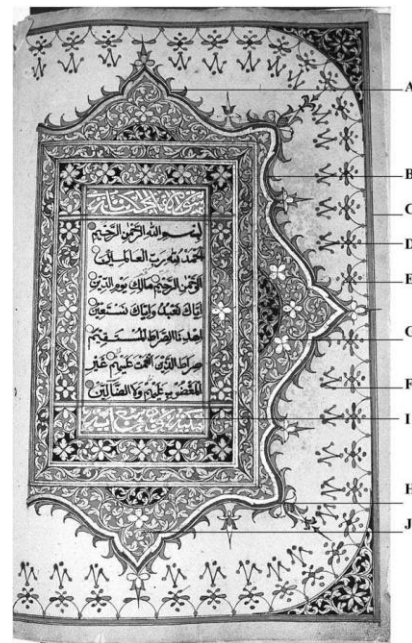 A
B
C
D
E
G
F
I
H
J
بِسْمِ اللهِ الرَّحْمٰنِ الرَّحِيْمِ
اَلْحَمْدُ لِلّٰهِ رَبِّ الْعَالَمِيْنَ
الرَّحْمٰنِ الرَّحِيْمِ مَالِكِ يَوْمِ الدِّيْنِ
اِيَّاكَ نَعْبُدُ وَاِيَّاكَ نَسْتَعِيْنُ
اِهْدِنَا الصِّرَاطَ الْمُسْتَقِيْمَ
صِرَاطَ الَّذِيْنَ اَنْعَمْتَ عَلَيْهِمْ غَيْرِ
الْمَغْضُوْبِ عَلَيْهِمْ وَلَا الضَّالِّيْنَ